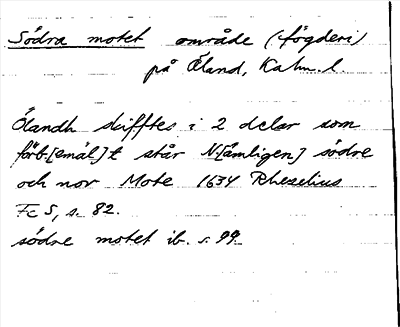 Södra motet område (fögderi)
på Öland, Kalm. l.
Ölandh skifftes i 2 delar som
förb.[emäl]t står N[ämligen] södre
och nor Mote 1634 Rhezelius
Fc 5, s. 82.
södre motet ib. s. 99